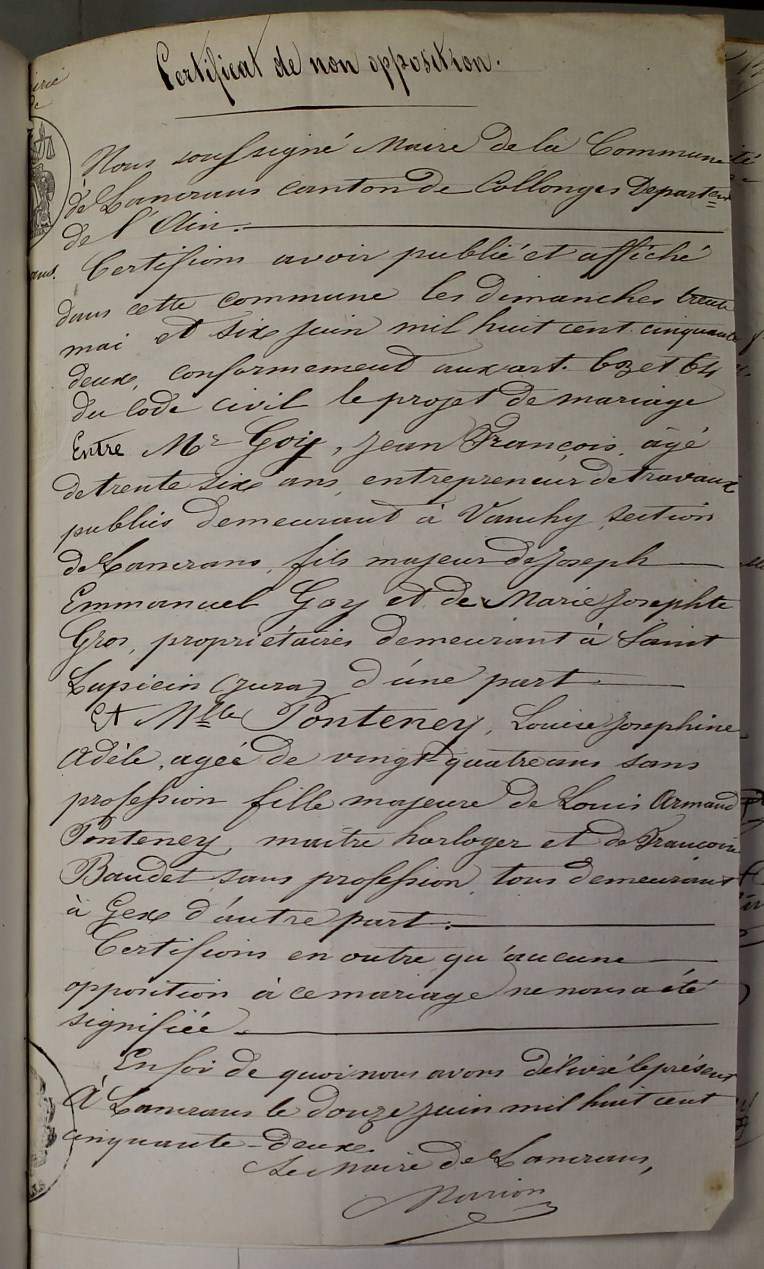 Certificat de non opposition.
Nous soussigné Maire de la Commune
de Lancrans canton de Collonges Departem
de l'Ain.
Certifions avoir publié et affiché
dans cette commune les dimanches trente
mai et six juin mil huit cent cinquante
deux, conformement aux art. 63 et 64
du code civil le projet de mariage
Entre Mr Goÿ, Jean François, âgé
de trente six ans, entrepreneur de travaux
publics demeurant à Vanchy, section
de Lancrans, fils majeur de Joseph
Emmanuel Goy et de Marie Josephte
Gros, propriétaires demeurant à Saint
Lupicin (Jura) d'une part
Et Mlle Ponteney, Louise Josephine
Adèle, agée de vingt quatre ans sans
profession fille majeure de Louis Armand
Ponteney, maitre horloger et de Francoise
Baudet sans profession, tous demeurant
à Gex d'autre part.
Certifions en outre qu'aucune
opposition à ce mariage ne nous a été
signifiée.
En foi de quoi nous avons délivré le présent
À Lancrans le douze juin mil huit cent
cinquante-deux
Le Maire de Lancrans,